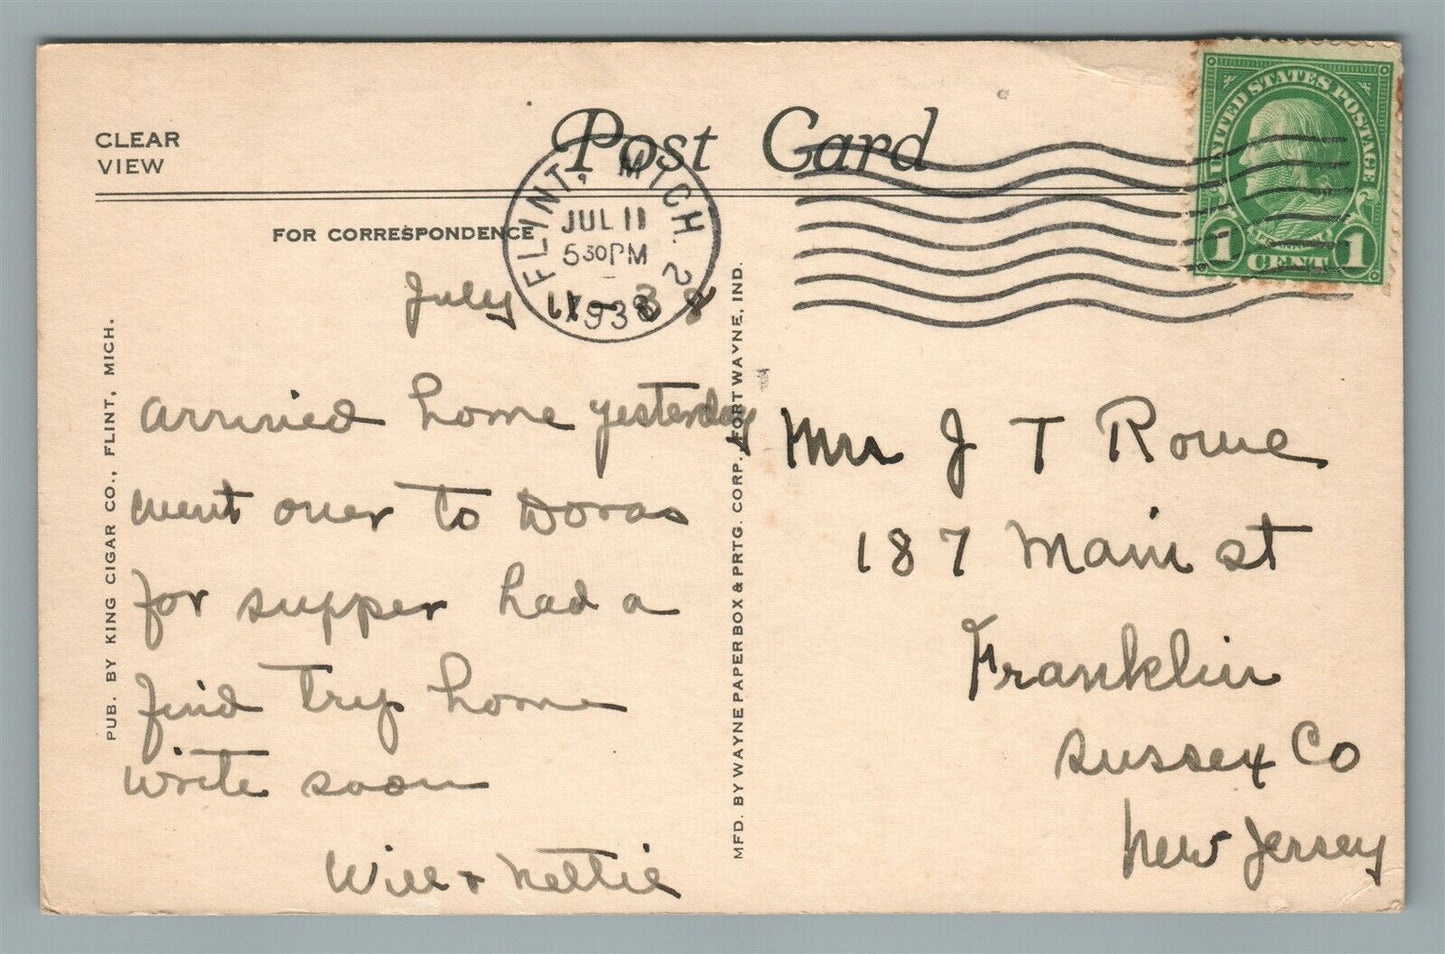 CLEAR
VIEW
Post Card
FOR CORRESPONDENCE
FLINT, MICH. 2
JUL 11
5 30 PM
1938
UNITED STATES POSTAGE
1 CENT 1
July 11 - 38
arrived home yesterday
went over to Doras
for supper had a
find trip home
write soon
Will + Nettie
Mrs J T Rowe
187 Main st
Franklin
Sussex Co
New Jersey
PUB. BY KING CIGAR CO., FLINT, MICH.
MFD. BY WAYNE PAPER BOX & PRTG. CORP., FORT WAYNE, IND.